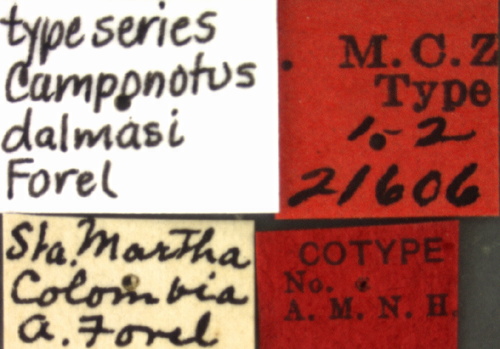 type series
Camponotus
dalmasi
Forel
M.C.Z
Type
1-2
21606
Sta. Martha
Colombia
A. Forel
COTYPE
No.
A. M. N. H.